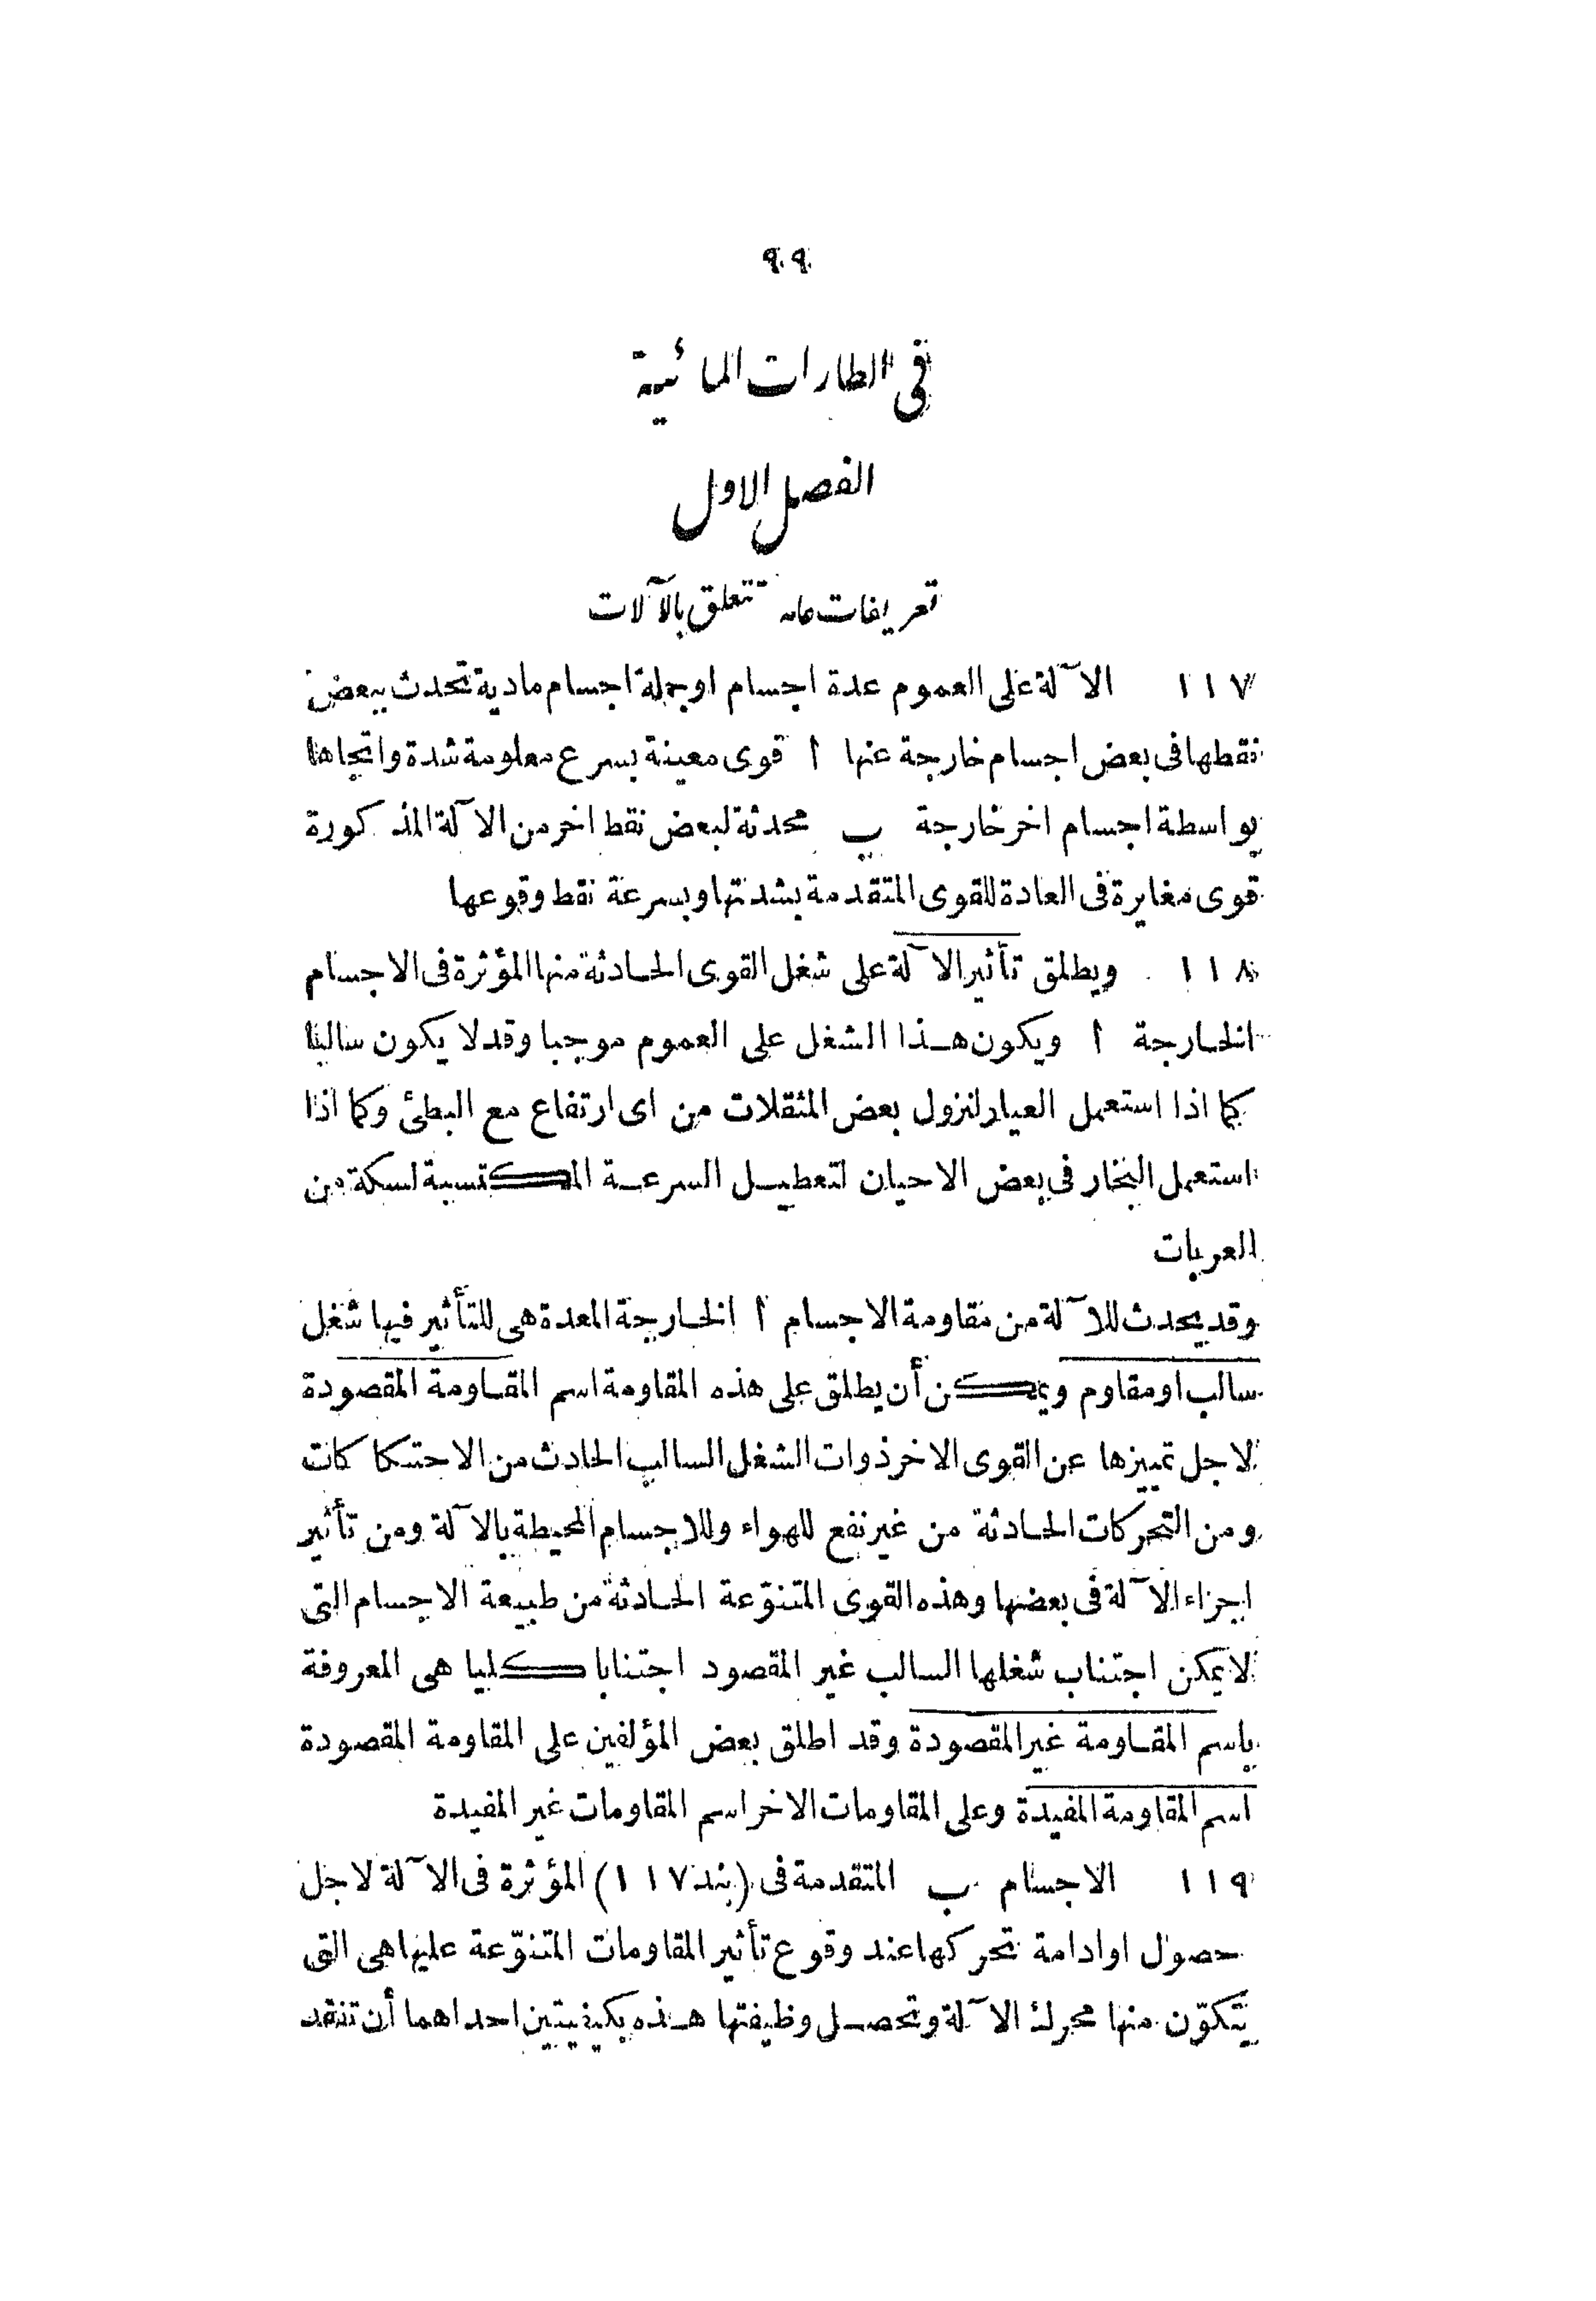 ٩٩
فى الطارات المائية
الفصل الاول
تعريفات عامه تتعلق بالآلات
١١٧ الآلة على العموم عدة اجسام اوجملة اجسام مادية تحدث ببعض
نقطها فى بعض اجسام خارجة عنها ا قوى معينة بسرع معلومة شدة واتجاها
بواسطة اجسام اخر خارجة ب محدثة لبعض نقط اخر من الآلة المذكورة
قوى مغايرة فى العادة للقوى المتقدمة بشدتها وبسرعة نقط وقوعها
١١٨ ويطلق تأثير الآلة على شغل القوى الحادثة منها المؤثرة فى الاجسام
الخارجة ا ويكون هذا الشغل على العموم موجبا وقد لا يكون سالبا
كما اذا استعمل العيار لنزول بعض المثقلات من اى ارتفاع مع البطئ وكما اذا
استعمل البخار فى بعض الاحيان لتعطيل السرعة المكتسبة لسكة من
العربات
وقد يحدث للآلة من مقاومة الاجسام ا الخارجة المعدة هى للتأثير فيها شغل
سالب اومقاوم ويمكن أن يطلق على هذه المقاومة اسم المقاومة المقصودة
لاجل تمييزها عن القوى الاخر ذوات الشغل السالب الحادث من الاحتكاكات
ومن التحركات الحادثة من غير نفع للهواء وللاجسام المحيطة بالآلة ومن تأثير
اجزاء الآلة فى بعضها وهذه القوى المتنوّعة الحادثة من طبيعة الاجسام التى
لا يمكن اجتناب شغلها السالب غير المقصود اجتنابا كليا هى المعروفة
باسم المقاومة غير المقصودة وقد اطلق بعض المؤلفين على المقاومة المقصودة
اسم المقاومة المفيدة وعلى المقاومات الاخر اسم المقاومات غير المفيدة
١١٩ الاجسام ب المتقدمة فى (بند ١١٧) المؤثرة فى الآلة لاجل
حصول اوادامة تحركها عند وقوع تأثير المقاومات المتنوّعة عليها هى التى
يتكوّن منها محرك الآلة وتحصل وظيفتها هذه بكيفيتين احداهما أن تنقد